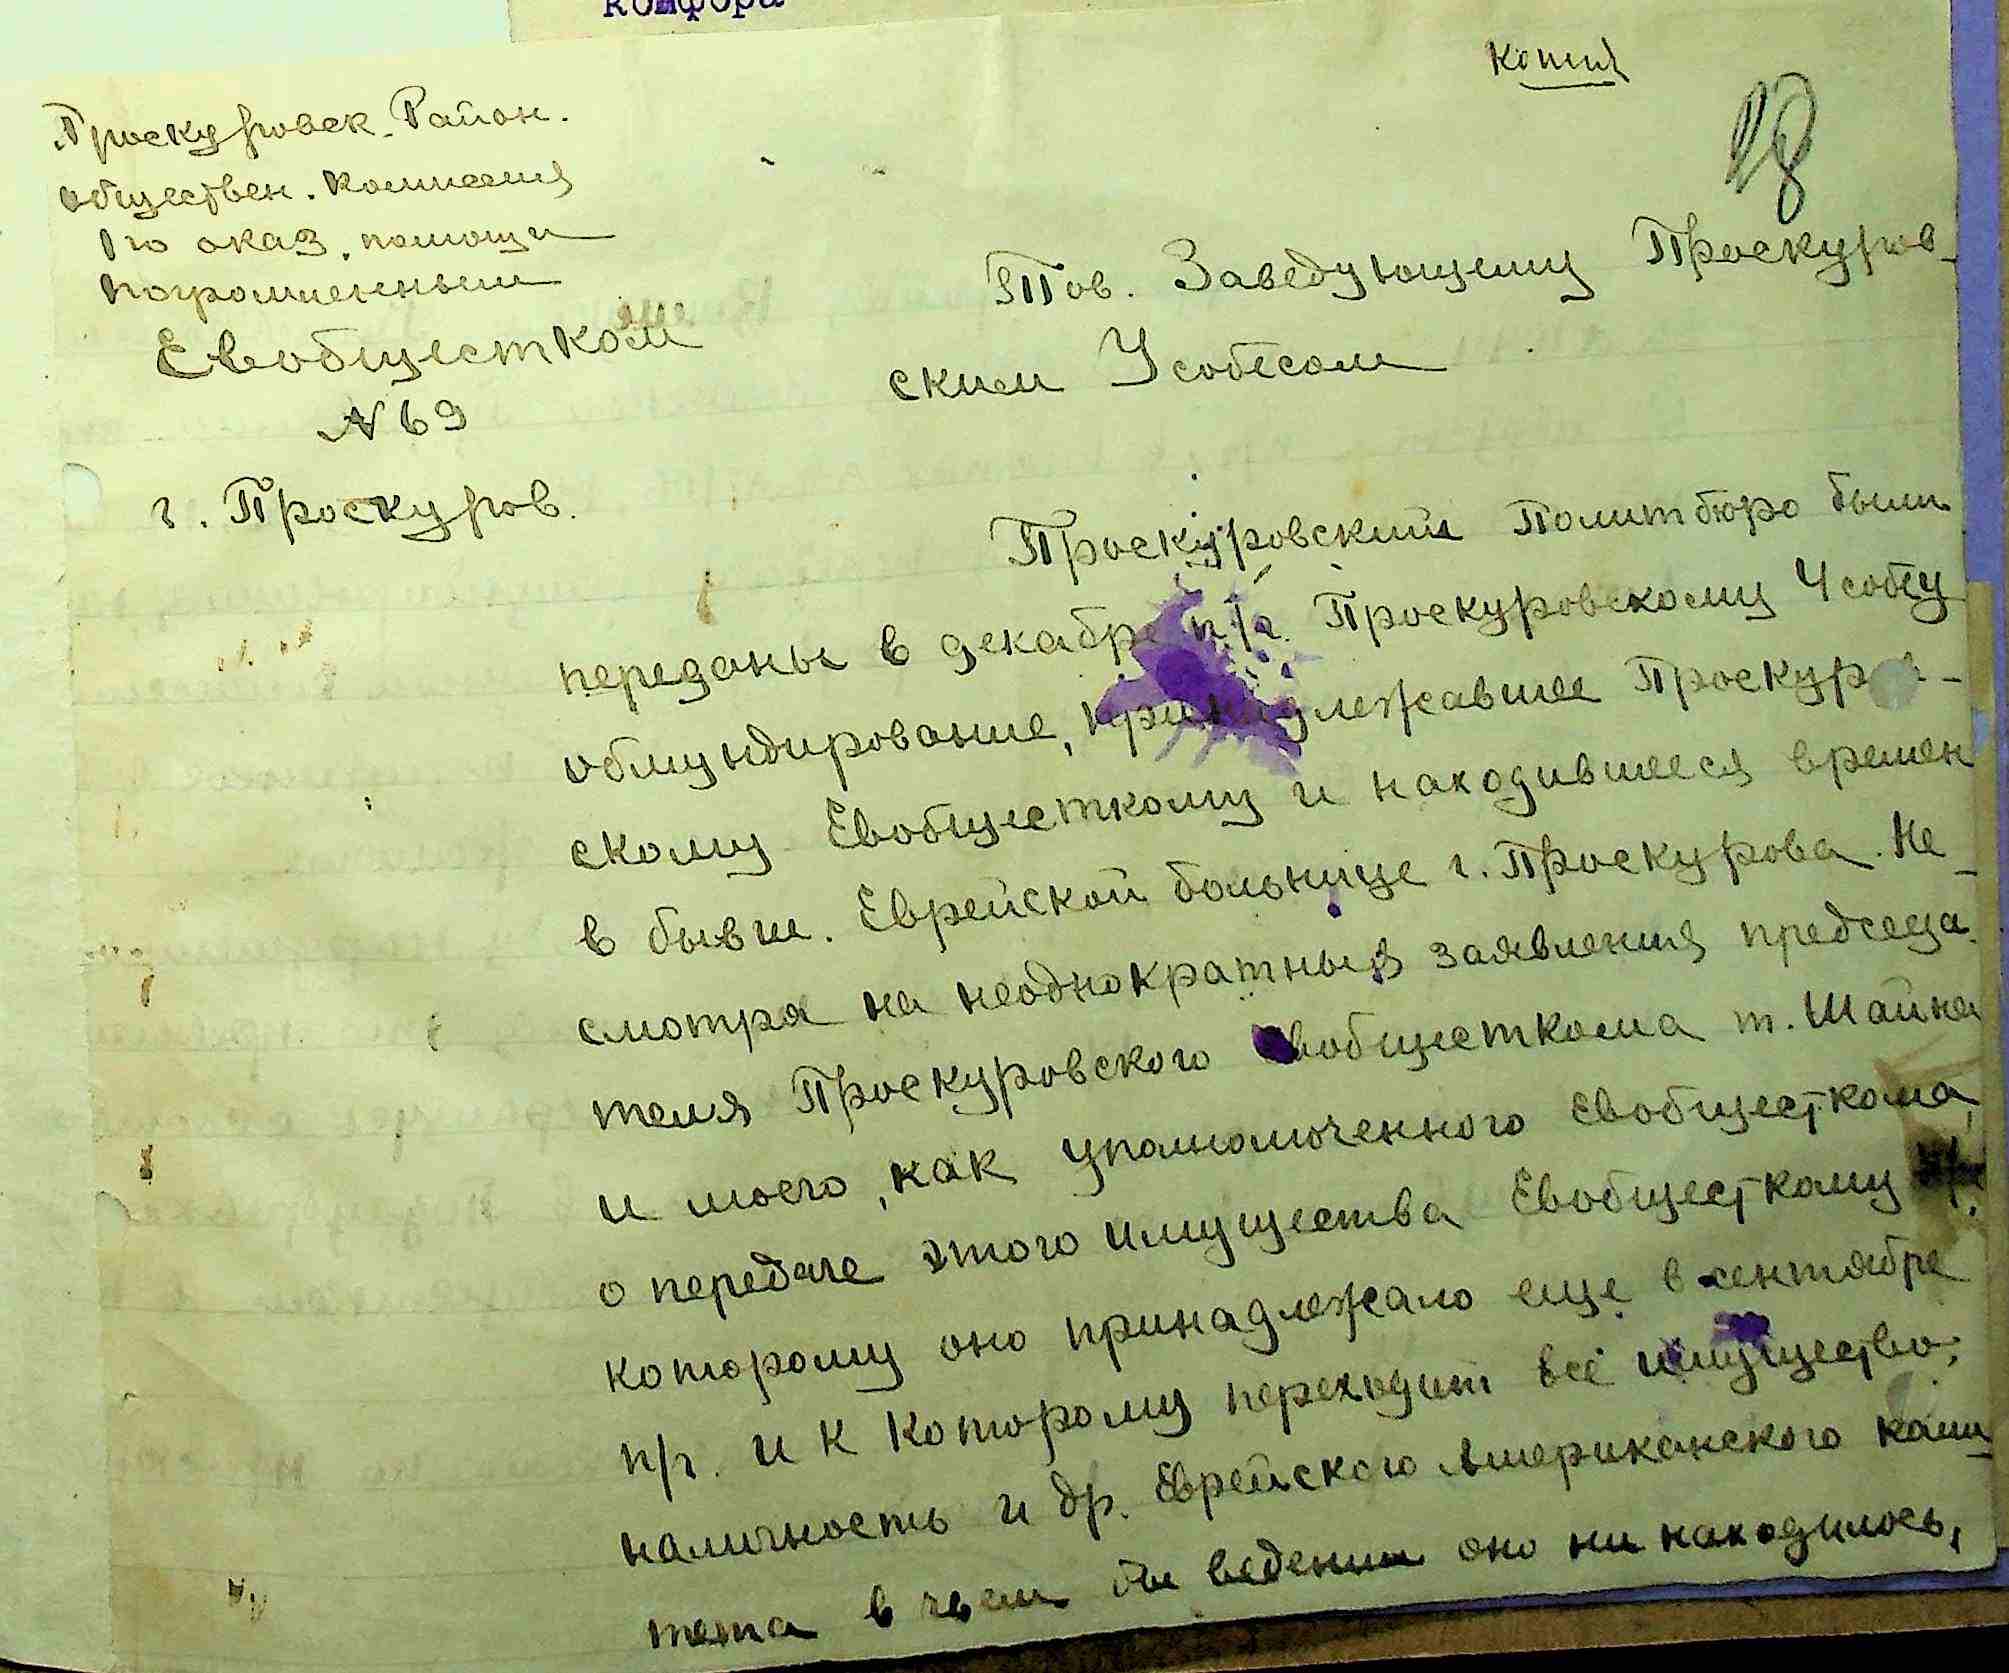 комфора
Копия
28
Проскуровск. Район.
обществен. комиссия
по оказ. помощи
погромленным
Евобщестком
№ 69
г. Проскуров.
Тов. Заведующему Проскуров-
ским Усобесом
Проскуровским Политбюро были
переданы в декабре п/г. Проскуровскому Усобесу
обмундирование, принадлежавшее Проскуров-
скому Евобщесткому и находившееся времен
в бывш. Еврейской больнице г. Проскурова. Не-
смотря на неоднократныя заявления председа-
теля Проскуровского Евобщесткома т. Шайна
и моего, как уполномоченного Евобщесткома,
о передаче этого имущества Евобщесткому
которому оно принадлежало еще в сентябре
п/г. и к которому переходит всё имущество,
наличность и др. Еврейского Американского коми-
тета в чьем бы ведении оно ни находилось,